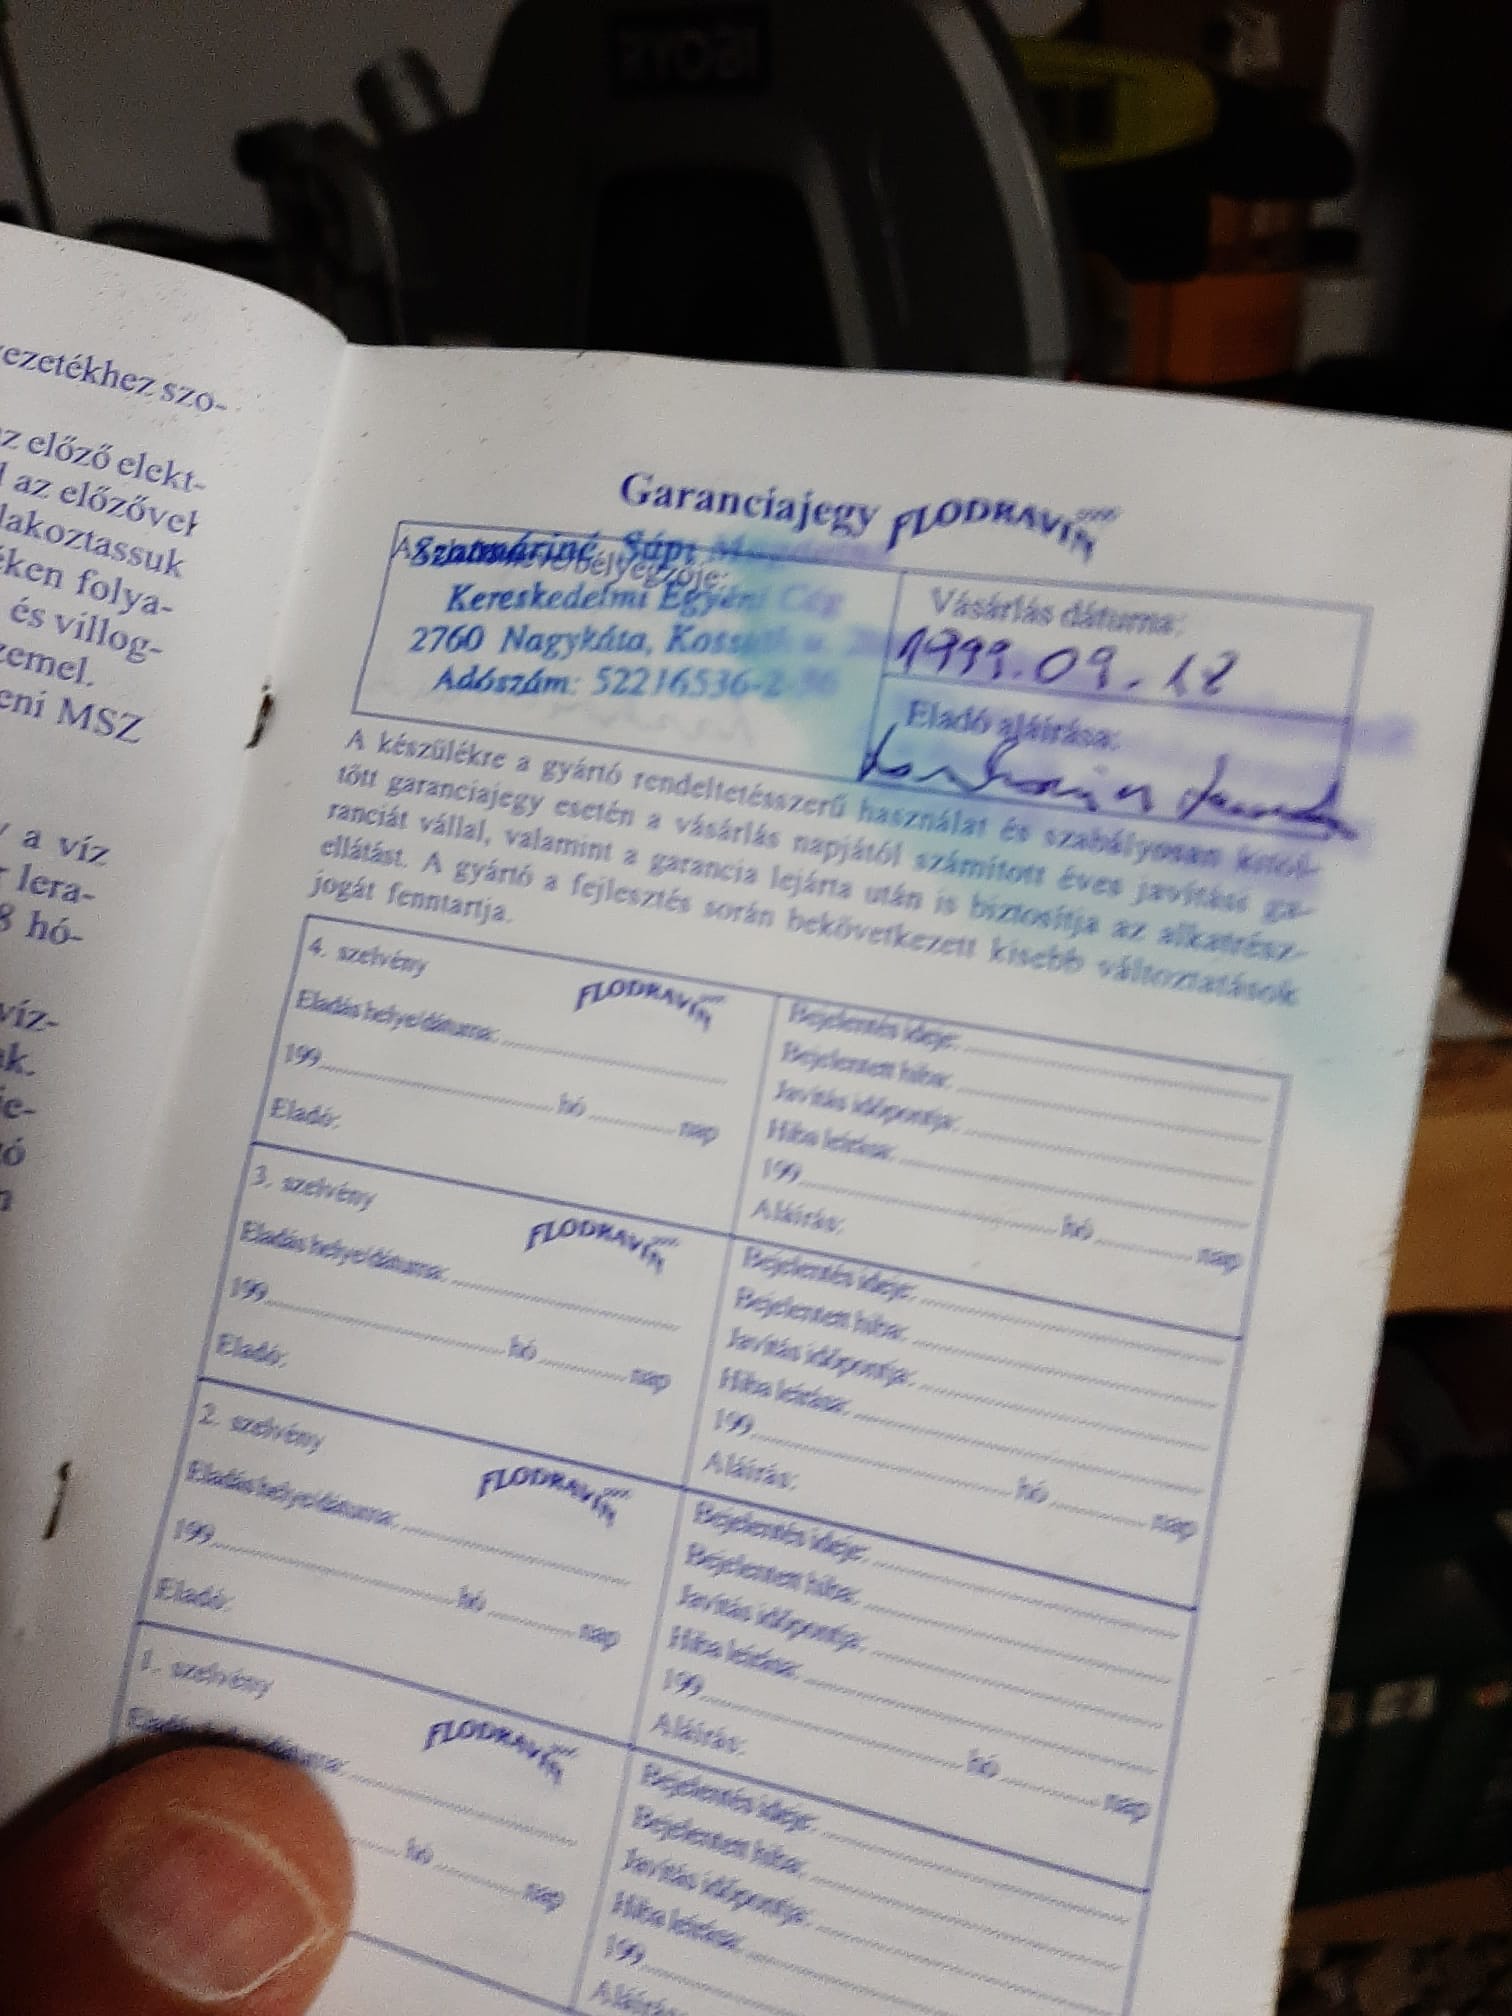 RYOBI
ezetékhez szo-
z előző elekt-
az előzővel
lakoztassuk
ken folya-
és villog-
zemel.
eni MSZ
a víz
lera-
8 hó-
víz-
Garanciajegy FLODRAVÍM
bélyegzője:
Szatmáriné Sápi
Kereskedelmi Egyéni Cég
2760 Nagykáta, Kossuth u.
Adószám: 52216536-2-
Vásárlás dátuma:
1999.09.18
Eladó aláírása:
A készülékre a gyártó rendeltetésszerű használat és szabályosan kitöl-
tött garanciajegy esetén a vásárlás napjától számított éves javítási ga-
ranciát vállal, valamint a garancia lejárta után is biztosítja az alkatrész-
ellátást. A gyártó a fejlesztés során bekövetkezett kisebb változtatások
jogát fenntartja.
4. szelvény
FLODRAVÍM
Eladás helye/dátuma:
199 hó nap
Eladó:
Bejelentés ideje:
Bejelentett hiba:
Javítás időpontja:
Hiba leírása:
199 hó nap
Aláírás:
3. szelvény
FLODRAVÍM
Eladás helye/dátuma:
199 hó nap
Eladó:
Bejelentés ideje:
Bejelentett hiba:
Javítás időpontja:
Hiba leírása:
199 hó nap
Aláírás:
2. szelvény
FLODRAVÍM
Eladás helye/dátuma:
199 hó nap
Eladó:
Bejelentés ideje:
Bejelentett hiba:
Javítás időpontja:
Hiba leírása:
199 hó nap
Aláírás:
1. szelvény
FLODRAVÍM
hó nap
Bejelentés ideje:
Bejelentett hiba:
Javítás időpontja:
Hiba leírása:
199
Aláírás: